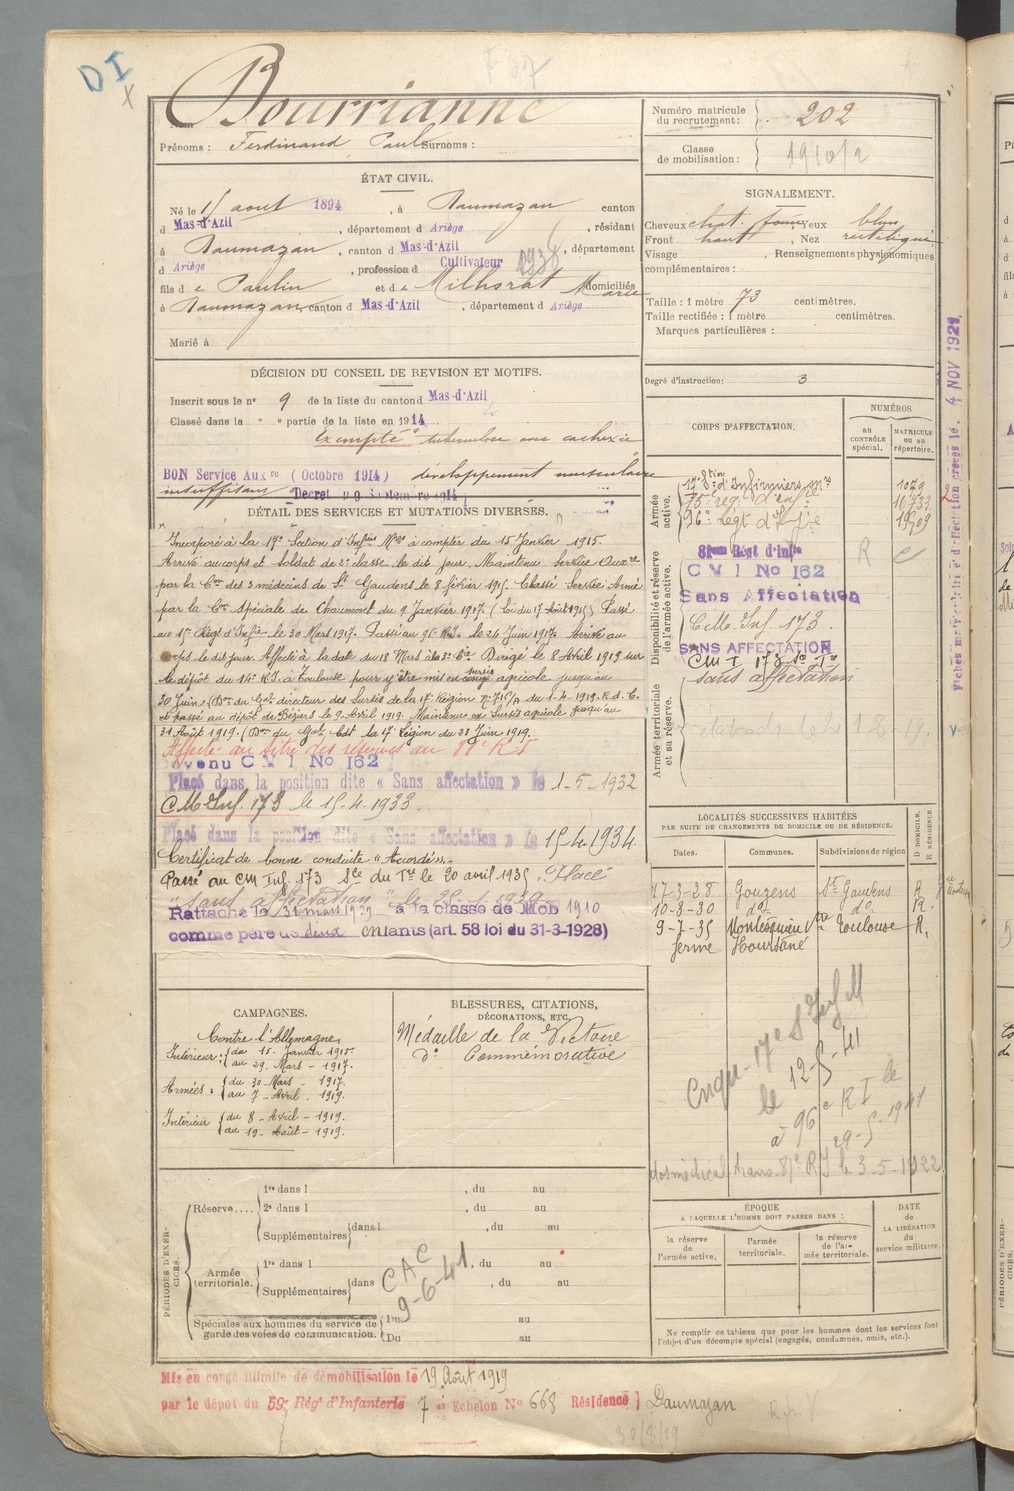 D I
X
F 37
Bourrianne
Nom
Prénoms : Ferdinand Paul Surnoms :
Numéro matricule du recrutement : 202
Classe de mobilisation : 1910/2
ÉTAT CIVIL.
Né le 15 août 1894, à Daumazan canton
d Mas-d'Azil, département d Ariège, résidant
à Daumazan, canton d Mas-d'Azil, département
d Ariège, profession d Cultivateur 1938
fils d e Paulin et d e Milhorat Marie domiciliés
à Daumazan, canton d Mas-d'Azil, département d Ariège
Marié à
SIGNALEMENT.
Cheveux chat. foncé Yeux bleus
Front haut, Nez rectiligne
Visage, Renseignements physionomiques
complémentaires :
Taille : 1 mètre 73 centimètres.
Taille rectifiée : 1 mètre centimètres.
Marques particulières :
Degré d'instruction : 3
DÉCISION DU CONSEIL DE REVISION ET MOTIFS.
Inscrit sous le n° 9 de la liste du canton d Mas-d'Azil
Classé dans la " e partie de la liste en 1914
Exempté tuberculose avec cachexie
BON Service Aux re (Octobre 1914) développement musculaire
insuffisant Decret du 9 Septembre 1914
DÉTAIL DES SERVICES ET MUTATIONS DIVERSES.
Incorporé à la 17e Section d'Infiers Mres à compter du 15 Janvier 1915.
Arrivé au corps et soldat de 2e classe le dit jour. Maintenu Service Auxre
par la Con des 3 médecins de St Gaudens le 8 février 1915. Classé Service Armé
par la Con Spéciale de Chaumont du 9 Janvier 1917. (Loi du 17 Août 1915) Passé
au Régt d'Infie le 30 Mars 1917. Passé au 96e R.I. le 24 Juin 1917. Arrivé au
corps le dit jour. Affecté à la date du 18 Mars à la 3e Cie Dirigé le 8 Avril 1919 sur
le dépôt du 14e R.I. à Toulouse pour y être mis en congé sursis agricole jusqu'au
30 Juin (Don du Gal directeur des Sursis de la 17e Région du 1-4-1919. R.d.C.
et passé au dépôt de Béziers le 9 Avril 1919. Maintenu en Sursis agricole jusqu'au
31 Août 1919. (Don du Gal Cdt la 17e Région du 23 Juin 1919.
Affecté au titre des réserves au 81e R I
Devenu C M I No 162
Placé dans la position dite « Sans affectation » le 1-5-1932
C M Inf. 173 le 15-4-1933.
Placé dans la position dite « Sans affectation » le 15-4-1934
Certificat de bonne conduite « Accordé ».
Passé au CM Inf. 173 Sce du Tre le 20 avril 1935. Placé
"sans affectation" le
Rattaché le 31 mars 1939 à la classe de Mob 1910
comme père de deux enfants (art. 58 loi du 31-3-1928)
CORPS D'AFFECTATION.
NUMÉROS
au contrôle spécial.
matricule ou au répertoire.
Armée active.
17e Stion d'Infirmiers Mres 1079
rég. d'Infie 16733
96e Régt d'Infie 19709
Disponibilité et réserve de l'armée active.
81me Régt d'Infie R C
C M I No 162
Sans Affectation
C.M. Inf. 173.
SANS AFFECTATION
CM I 173 Sce Tre
sans affectation
Armée territoriale et sa réserve.
LOCALITÉS SUCCESSIVES HABITÉES
PAR SUITE DE CHANGEMENTS DE DOMICILE OU DE RÉSIDENCE.
Dates. Communes. Subdivisions de région D DOMICILE. R RÉSIDENCE
17-3-28 Gouzens St Gaudens R
10-3-30 do do R.
9-7-35 Montesquieu Vtre Toulouse R.
ferme Hourtané
CAMPAGNES.
Contre l'Allemagne,
Intérieur : du 15 Janvier 1915.
au 29 Mars - 1917.
Armées : du 30 Mars - 1917.
au 7 - Avril . 1919.
Intérieur du 8 - Avril - 1919.
au 19 - Août - 1919.
BLESSURES, CITATIONS,
DÉCORATIONS, ETC.
Médaille de la Victoire
d° Commémorative
17e S Inf M
le 12-5-41
à 96e R I le
29-5-1941
dos médical trans. 81e R I le 3-5-1922
PÉRIODES D'EXERCICES.
Réserve.... 1re dans l , du au
2e dans l , du au
Supplémentaires dans l , du au
Armée territoriale. 1re dans l , du au
Supplémentaires dans , du au
C A C
9-6-41
Spéciales aux hommes du service de
garde des voies de communication. Du au
Du au
ÉPOQUE
A LAQUELLE L'HOMME DOIT PASSER DANS :
la réserve de l'armée active.
l'armée territoriale.
la réserve de l'armée territoriale.
DATE
de
LA LIBÉRATION
du
service militaire.
Ne remplir ce tableau que pour les hommes dont les services font
l'objet d'un décompte spécial (engagés, condamnés, omis, etc.).
Mis en congé illimité de démobilisation le 19 Août 1919
par le dépôt du 59e Régt d'Infanterie 7e Echelon No 668 Résidence } Daumazan
30/8/19
4 NOV 1921.